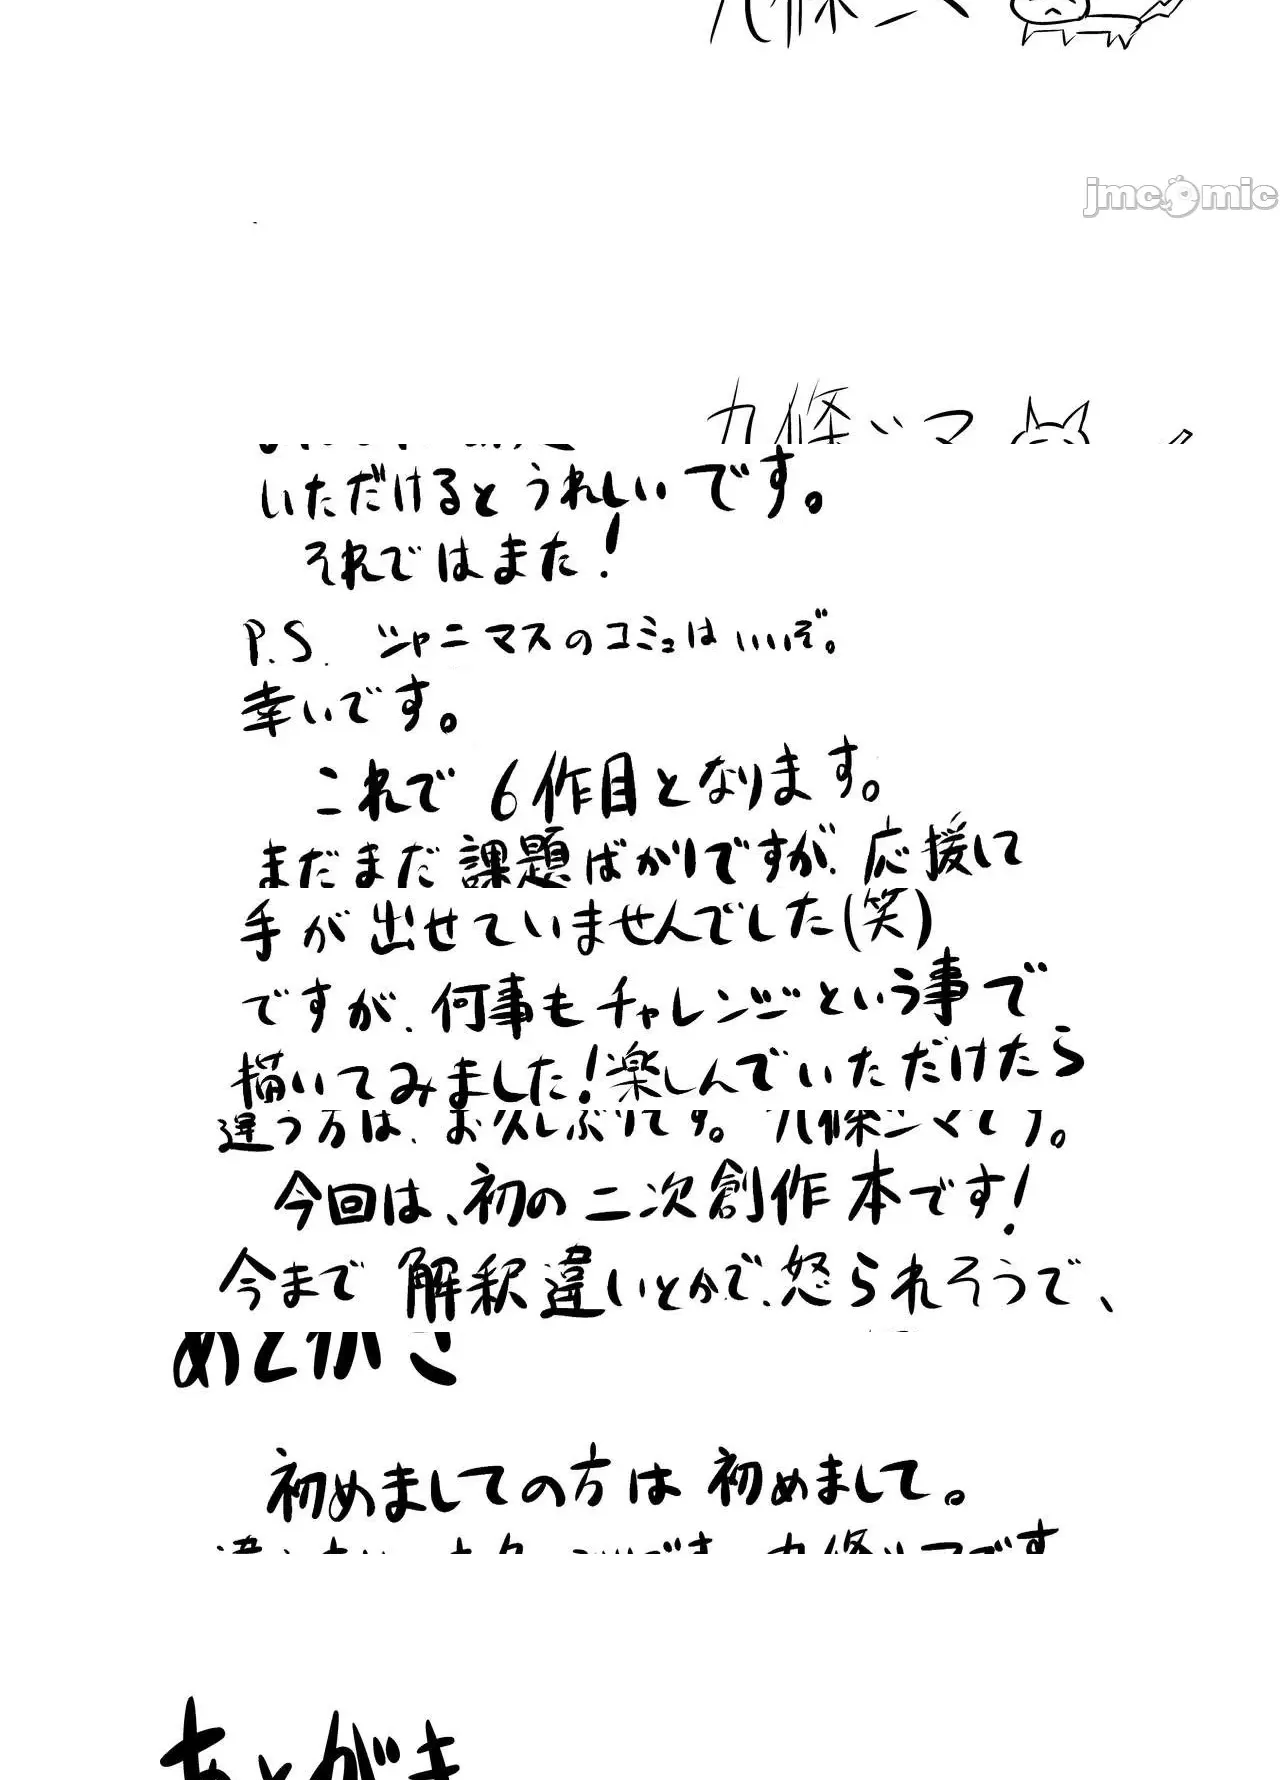 九條シマ
jmcomic
九條シマ
いただけるとうれしいです。
それではまた！
P.S. シャニマスのコミュはいいぞ。
幸いです。
これで6作目となります。
まだまだ課題ばかりですが、応援して
手が出せていませんでした(笑)
ですが、何事もチャレンジという事で
描いてみました！楽しんでいただけたら
違う方は、お久しぶりです。九條シマです。
今回は、初の二次創作本です！
今まで解釈違いとかで、怒られそうで、
あとがき
初めましての方は初めまして。
違う方は、お久しぶりです。九條シマです
あとがき